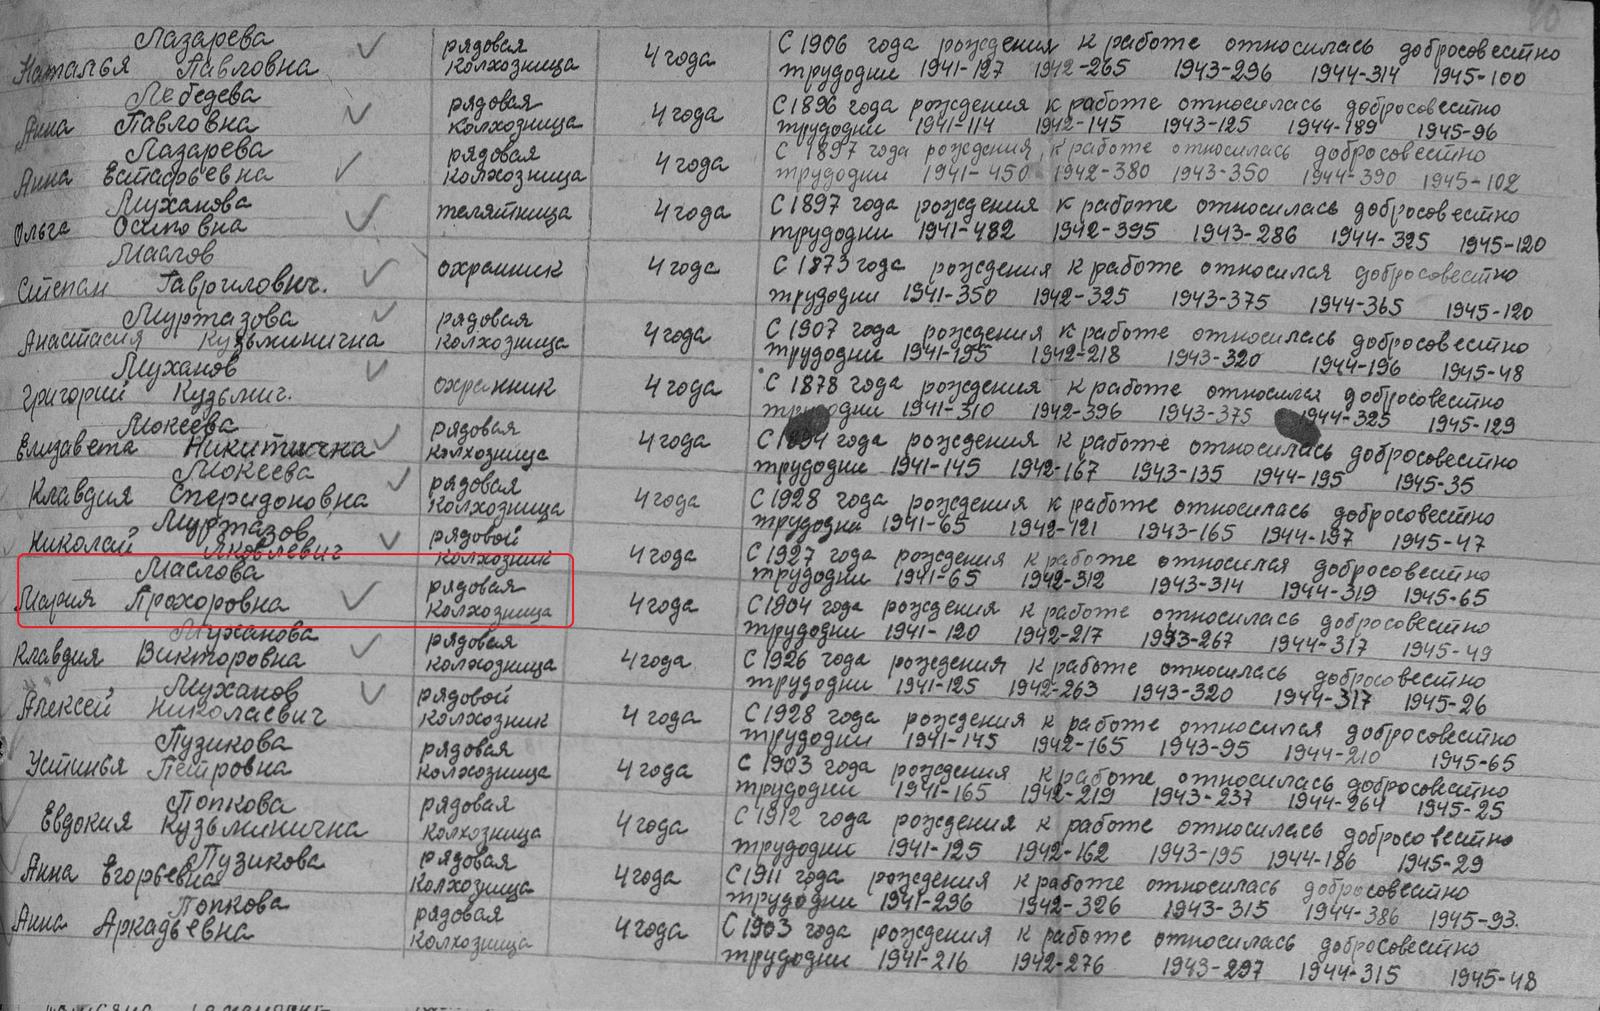 Лазарева рядовая 4 года С 1906 года рождения к работе относилась добросовестно
Наталья Павловна колхозница трудодни 1941-127 1942-265 1943-296 1944-314 1945-100
Лебедева рядовая 4 года С 1896 года рождения к работе относилась добросовестно
Анна Павловна колхозница трудодни 1941-114 1942-145 1943-125 1944-189 1945-96
Лазарева рядовая 4 года С 1897 года рождения к работе относилась добросовестно
Анна Евстафьевна колхозница трудодни 1941-450 1942-380 1943-350 1944-390 1945-102
Муханова телятница 4 года С 1897 года рождения к работе относилась добросовестно
Ольга Осиповна трудодни 1941-482 1942-395 1943-286 1944-325 1945-120
Маслов охранник 4 года С 1873 года рождения к работе относился добросовестно
Степан Гаврилович. трудодни 1941-350 1942-325 1943-375 1944-365 1945-120
Муржазова рядовая 4 года С 1907 года рождения к работе относилась добросовестно
Анастасия Кузьминична колхозница трудодни 1941-195 1942-218 1943-320 1944-196 1945-48
Муханов охранник 4 года С 1878 года рождения к работе относился добросовестно
Григорий Кузьмич. трудодни 1941-310 1942-396 1943-375 1944-325 1945-129
Мокеева рядовая 4 года С 1894 года рождения к работе относилась добросовестно
Елизавета Никитична колхозница трудодни 1941-145 1942-167 1943-135 1944-195 1945-35
Мокеева рядовая 4 года С 1928 года рождения к работе относилась добросовестно
Клавдия Сперидоновна колхозница трудодни 1941-65 1942-121 1943-165 1944-197 1945-47
Муржазов рядовой 4 года С 1927 года рождения к работе относился добросовестно
Николай Яковлевич колхозник трудодни 1941-65 1942-312 1943-314 1944-319 1945-65
Маслова рядовая 4 года С 1904 года рождения к работе относилась добросовестно
Мария Прохоровна колхозница трудодни 1941-120 1942-217 1943-267 1944-317 1945-49
Муханова рядовая 4 года С 1926 года рождения к работе относилась добросовестно
Клавдия Викторовна колхозница трудодни 1941-125 1942-263 1943-320 1944-317 1945-26
Муханов рядовой 4 года С 1928 года рождения к работе относился добросовестно
Алексей Николаевич колхозник трудодни 1941-145 1942-165 1943-95 1944-210 1945-65
Пузикова рядовая 4 года С 1903 года рождения к работе относилась добросовестно
Устинья Петровна колхозница трудодни 1941-165 1942-219 1943-237 1944-264 1945-25
Попкова рядовая 4 года С 1912 года рождения к работе относилась добросовестно
Евдокия Кузьминична колхозница трудодни 1941-125 1942-162 1943-195 1944-186 1945-29
Пузикова рядовая 4 года С 1911 года рождения к работе относилась добросовестно
Анна Егорьевна колхозница трудодни 1941-296 1942-326 1943-315 1944-386 1945-93.
Попкова рядовая 4 года С 1903 года рождения к работе относилась добросовестно
Анна Аркадьевна колхозница трудодни 1941-216 1942-276 1943-297 1944-315 1945-48